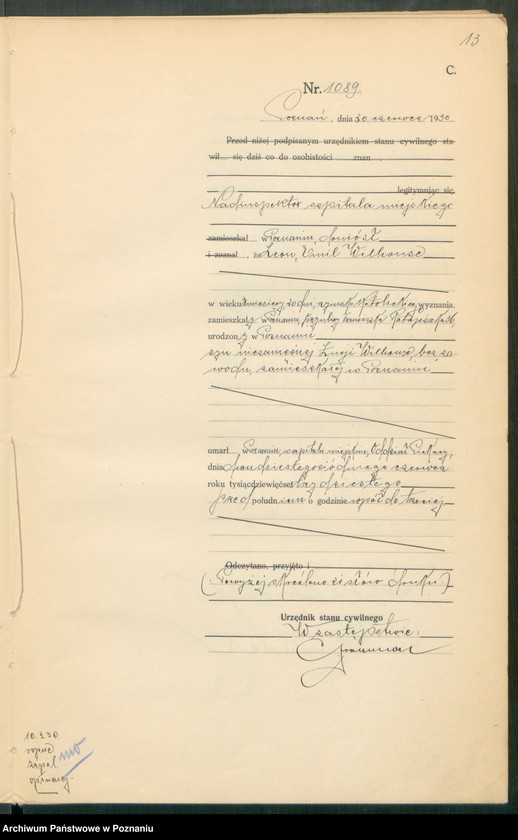 13
C.
Nr. 1089.
Poznań, dnia 30 czerwca 1930
Przed niżej podpisanym urzędnikiem stanu cywilnego sta-
wił się dziś co do osobistości znan
legitymując się
Nadinspektor szpitala miejskiego
zamieszkał w Poznaniu, doniósł
i zeznał, że Leon, Emil Wilhouse
w wieku 2 miesięcy 20 dni, rzymsko katolickiego wyznania.
zamieszkały w Poznaniu, przy ulicy
urodzony w Poznaniu
syn niezamężnej Łucji Wilhouse, bez za-
wodu, zamieszkałej w Poznaniu
umarł w Poznaniu, szpitalu miejskim, Oddział
dnia dwudziestegosiódmego czerwca
roku tysiącdziewięćset trzydziestego
przed południem o godzinie wpół do trzeciej
Odczytano, przyjęto i
(Powyżej skreślono 21 słów druku.)
Urzędnik stanu cywilnego
W zastępstwie:
10.
Archiwum Państwowe w Poznaniu